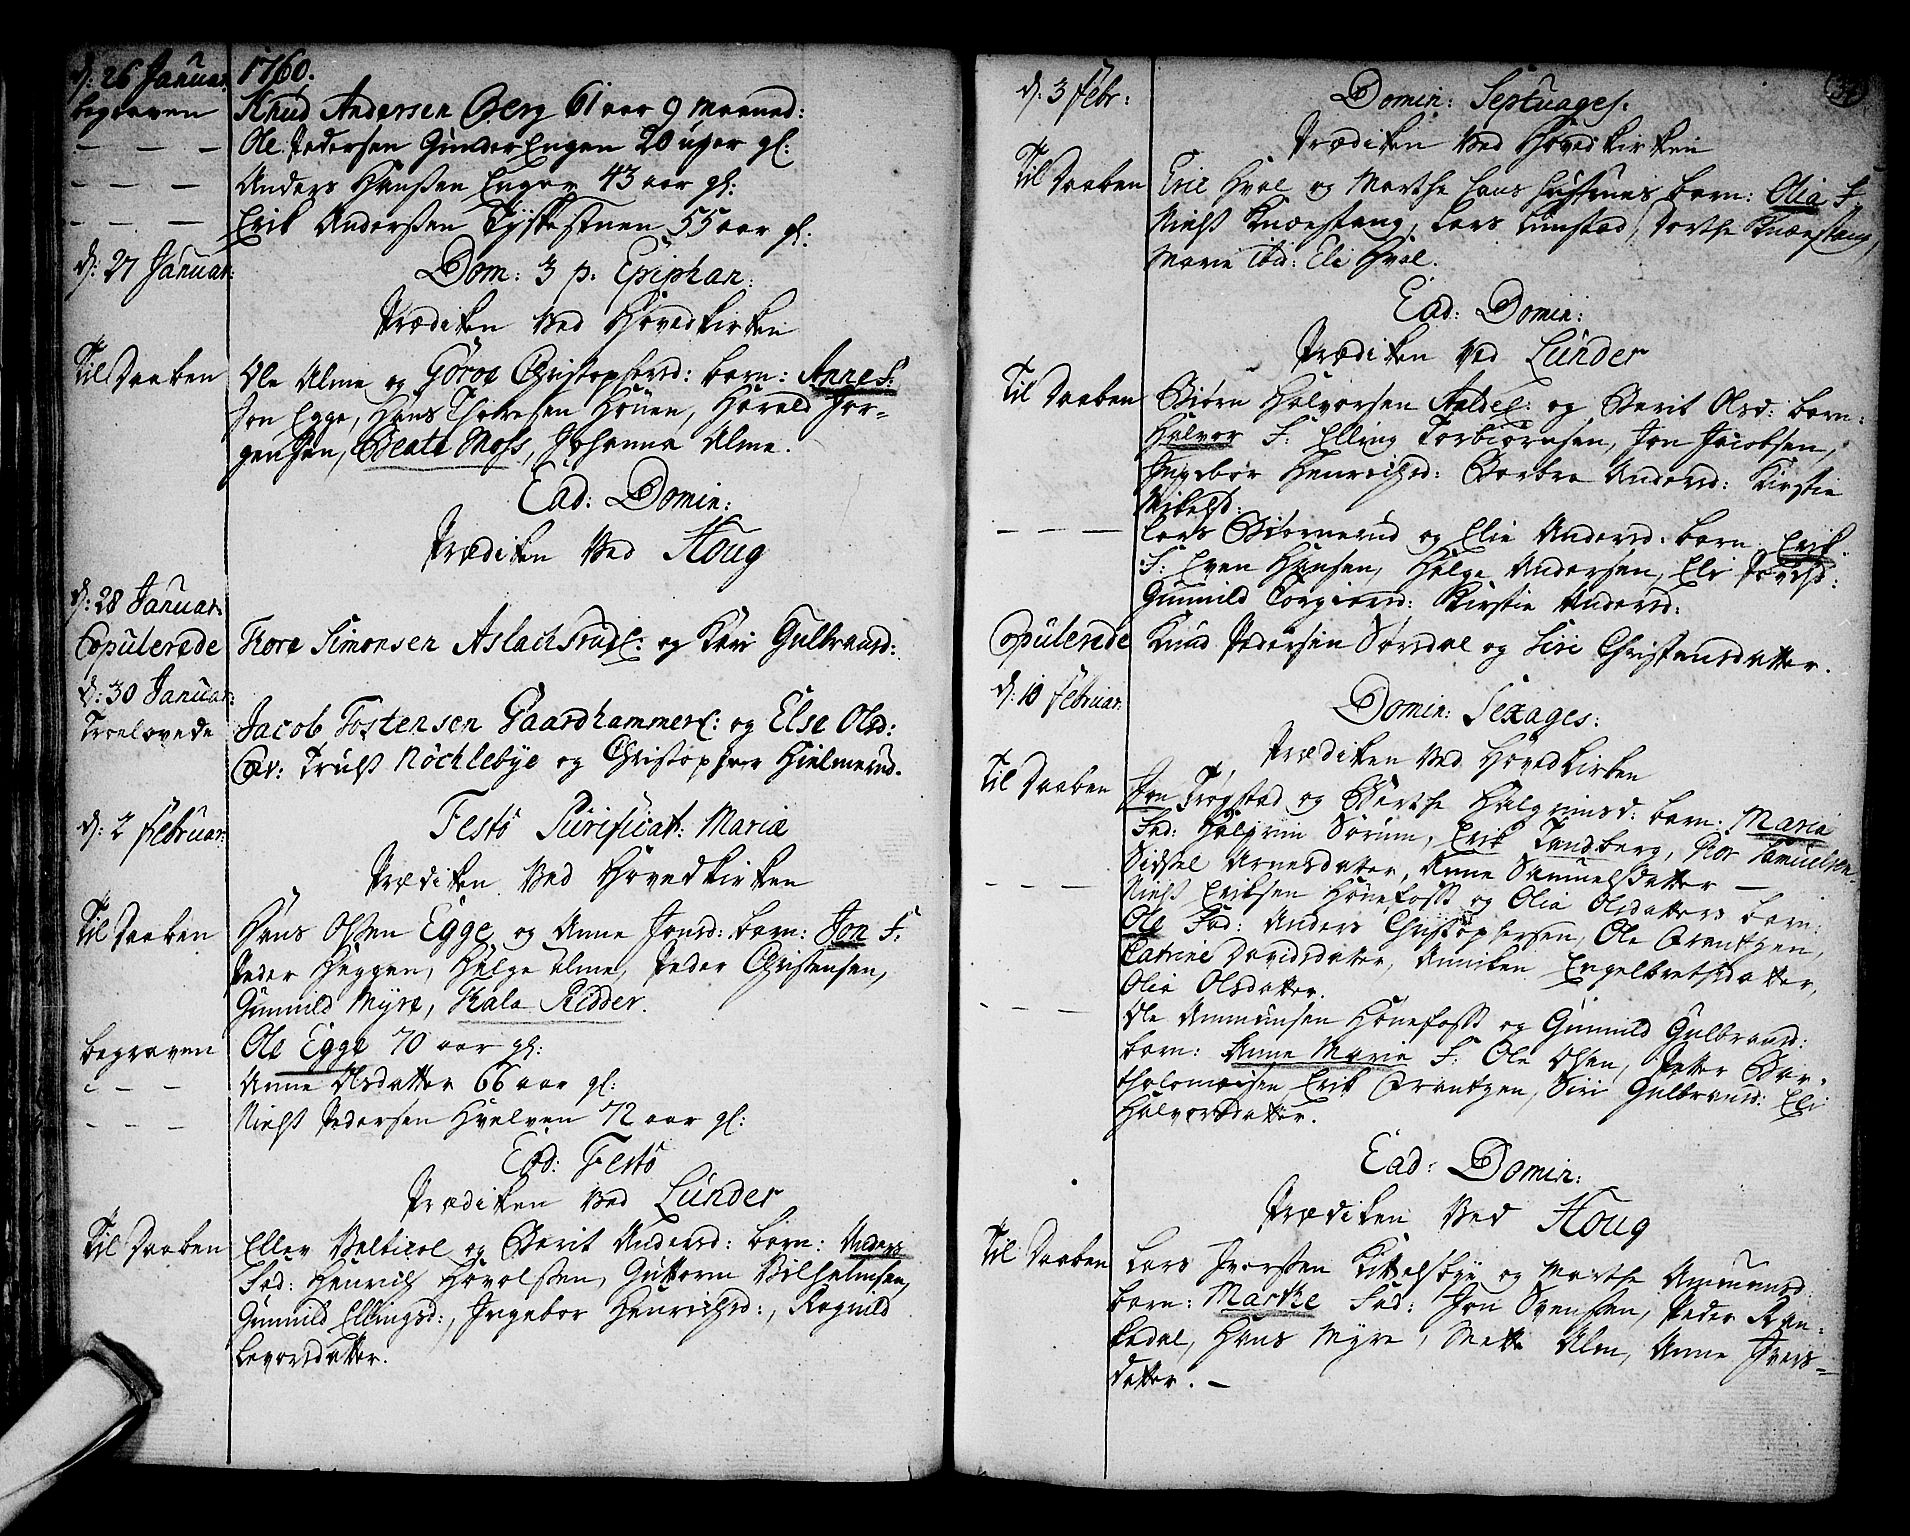 d: 26 Januar: 1760.
begraven Knud Andersen Berg 61 aar 9 Maaned:
— — — Ole Pedersen GunderEngen 20 uger gl:
— — — Anders Hansen Engen 43 aar gl:
— — — Erik Andersen Tyskestuen 55 aar gl:
d: 27 Januar: Dom: 3 p. Epiphan:
Prædiken Ved Hovedkirken
Til Daaben Ole Alme og Goroe Christophersd: barn: Anne F:
Jon Egge, Hans Thoresen Honen, Harald Jor-
gensen, Beate Moss, Johanna Alme.
Ead: Domin:
Prædiken Ved Houg
d: 28 Januar:
Copulerede Thore Simonsen Aslachsrud E: og Kari Gulbrandsd:
d: 30 Januar:
Troelovede Jacob Tostensen Gaardhammer E: og Else Olsd:
Cav: Truls Nöchlebye og Christopher Hielmerud.
d: 2 Februar: Festo Purificat: Mariæ
Prædiken Ved Hovedkirken
Til Daaben Hans Olsen Egge og Anne Jonsd: barn: Jon F:
Peder Heggen, Helge Alme, Peder Christensen,
Gunnild Myre, Kala Ridder.
begraven Ole Egge 70 aar gl:
— — — Anne Olsdatter 66 aar gl:
— — — Niels Pedersen Hvelven 72 aar gl:
Eod: Festo
Prædiken Ved Lunder
Til Daaben Ellev og Berit Andersd: barn: Anders
Fad: Henrich Hovolsen, Guttorm Vilhelmsen,
Gunnild Ellingsd:, Ingebor Henrichsd:, Ragnild
Levorsdatter.
34
d: 3 Febr: Domin: Septuages:
Prædiken Ved Hovedkirken
Til Daaben Eric Hval og Marthe barn: Olia F:
Niels Knæstang, Lars Lunstad, Dorthe Knæstang,
Marie Ibid: Eli Hval.
Ead: Domin:
Prædiken Ved Lunder
Til Daaben Biörn Halvorsen og Berit Olsd: barn:
Halvor F: Elling Torbiörnsen, Jon Jacobsen,
Ingebor Henrichsd: Barbra Andersd: Kirstie
Mikelsd:
— — — Lars Biörnerud og Elie Andersd: barn: Erik
F: Even Hansen, Helge Andersen, Eli
Gunnild Torgiersd: Kirstie Andersd:
Copulerede Knud Pedersen Sørsdal og Siri Christensdatter.
d: 10 Februar: Domin: Sexages:
Prædiken Ved Hovedkirken
Til Daaben Jon Frøgstad og Berthe Halgrimsd: barn: Maria
Fad: Halgrim Sørum, Erik Tandberg, Thor Samuelsen
Sidsel Arnesdatter, Anne Samuelsdatter —
— — — Niels Eriksen Hönefoss og Olia Olsdatters barn:
Ole Fad: Anders Christophersen, Ole Frantzen,
Catrine Davidsdatter, Anniken Engelbretsdatter,
Olia Olsdatter.
— — — Ole Ammunsen Hönefoss og Gunnild Gulbransd:
barn: Anne Marie F: Ole Olsen, Petter Bar-
tholomæisen Erik Frantzen, Siri Gulbransd: Eli
Halvorsdatter.
Ead: Domin:
Prædiken Ved Houg
Til Daaben Lars Iversen Kittelsbye og Marthe Ammunsd:
barn: Marthe Fad: Jon Svensen, Peder Ran-
dal, Hans Myre, Mette Alm, Anne Ivers-
datter. —